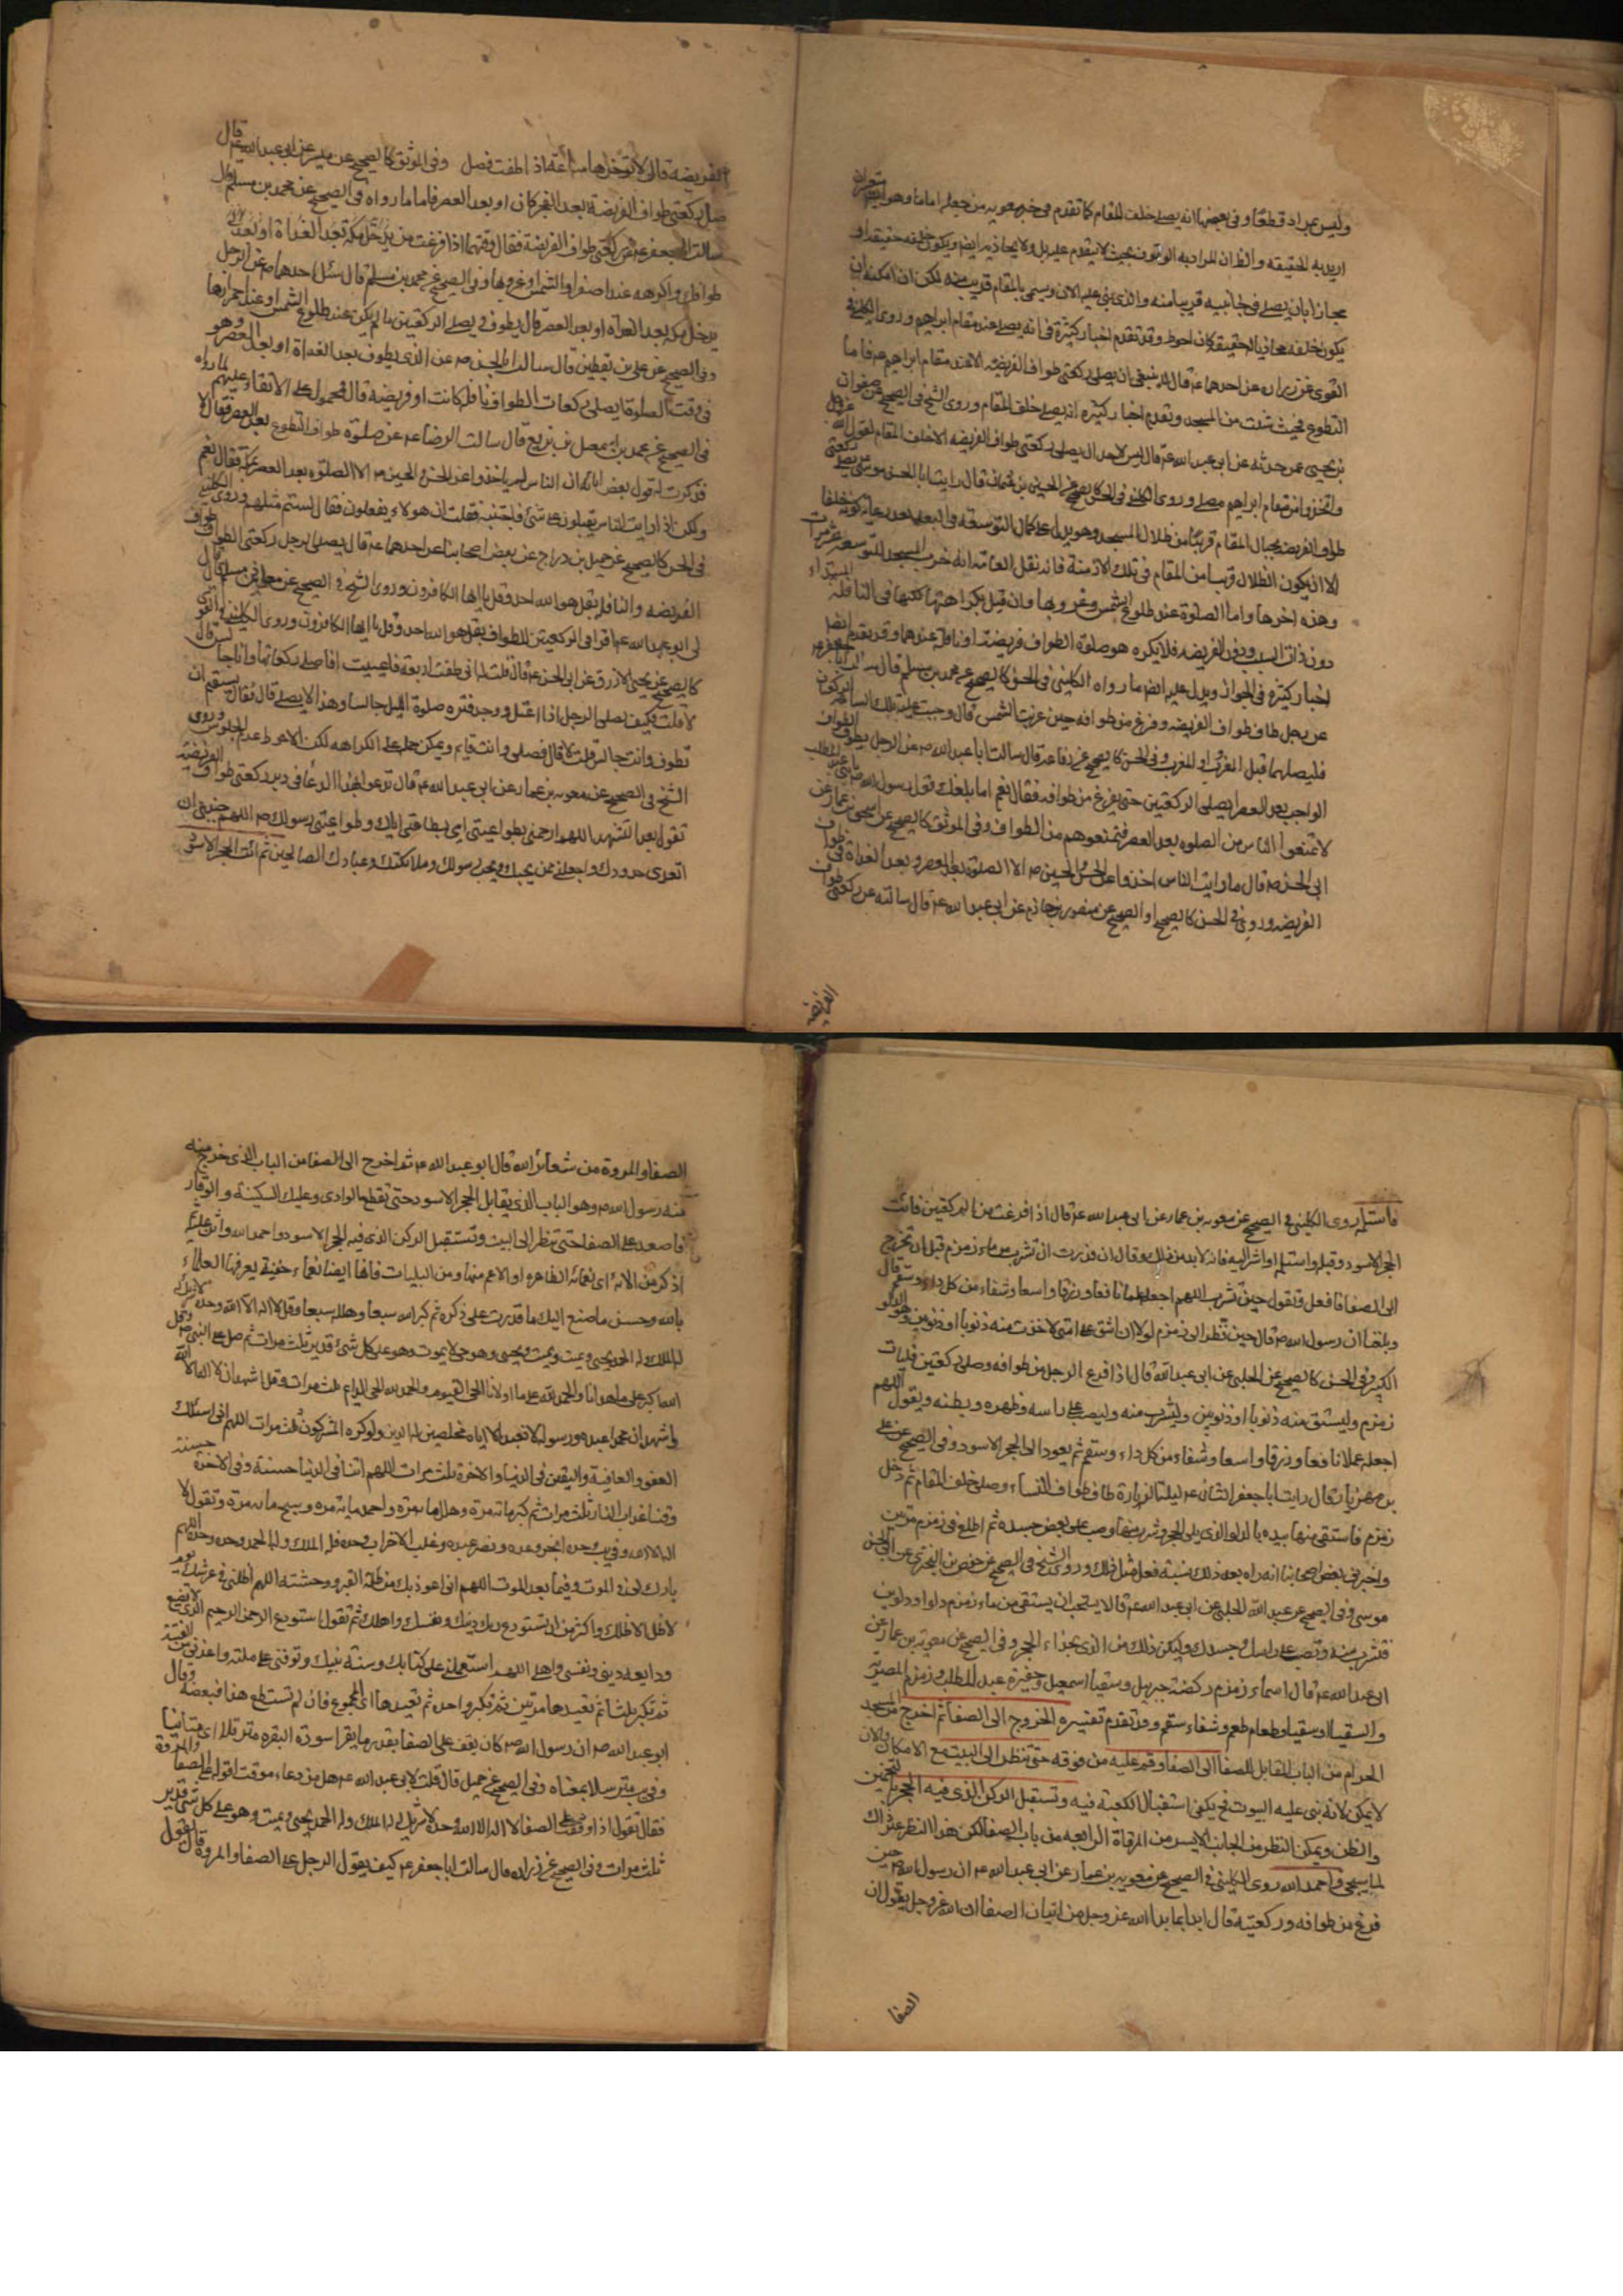 وليس بمراد قطعا وفى بعضها انه يصلى خلف المقام كما تقدم فى خبر معويه من جعله اماما وهو
اريد به الحقيقه والظاهر ان المراد به الوقوف بحيث لا يتقدم عليه بل ولا يحاذيه ايضا ويكون خلفه حقيقة او
مجازا بان يصلى فى جانبيه قريبا منه والذى بنى عليه الان ويسمى بالمقام قريب منه لكن ان امكنه ان
يكون خلفه محاذيا لحقيقته كان احوط وقد تقدم اخبار كثيرة فى انه يصلى عند مقام ابراهيم وروى الكلينى فى
القوى عن زرارة عن احدهما ع قال لا ينبغى ان يصلى ركعتى طواف الفريضه الا عند مقام ابراهيم ع فاما
التطوع فحيث شئت من المسجد وتقدم اخبار كثيره انه يصلى خلف المقام وروى الشيخ فى الصحيح عن صفوان
بن يحيى عمن حدثه عن ابى عبد الله ع قال ليس لاحد ان يصلى ركعتى طواف الفريضه الا خلف المقام لقول الله عز وجل
واتخذوا من مقام ابراهيم مصلى وروى الكلينى فى الحسن كالصحيح عن الحسين بن عثمان قال رايت ابا الحسن موسى ع يصلى ركعتى
طواف الفريضه بحيال المقام قريبا من ظلال المسجد وهو يدل على كمال التوسعه فى البعد بعد رعاية كونه خلفا
الا ان يكون الظلال قريبا من المقام فى تلك الازمنة فانه نقل العامه انه خرب المسجد للتوسعه عشر مرات
وهذه اخرها واما الصلوة عند طلوع الشمس وغروبها وان قيل بكراهتها لكنها فى النافلة المبتداء
دون ذات السبب ودون الفريضه فلا يكره هو صلوة الطواف فريضة او نافلة عندهما وقد تقدم ايضا
اخبار كثيره فى الجواز ويدل عليه ايضا ما رواه الكلينى فى الحسن كالصحيح عن محمد بن مسلم قال سالت ابا جعفر ع
عن رجل طاف طواف الفريضه وفرغ من طوافه حين غربت الشمس قال وجبت عليه تلك الساعة الركعتان
فليصلهما قبل المغرب او المغرب وفى الحسن كالصحيح عن رفاعه قال سالت ابا عبد الله ع عن الرجل يطوف الطواف
الواجب بعد العصر ايصلى الركعتين حتى يفرغ من طوافه فقال نعم اما بلغك قول رسول الله ص يا بنى عبد المطلب
لا تمنعوا الناس من الصلوه بعد العصر فتمنعوهم من الطواف وفى الموثق كالصحيح عن اسحق بن عمار عن
ابى الحسن ع قال ما رايت الناس اخذوا عن الحسن والحسين ع الا الصلوة بعد العصر وبعد الغداة فى طواف
الفريضه وروى فى الحسن كالصحيح او الصحيح عن منصور بن حازم عن ابى عبد الله ع قال سالته عن ركعتى طواف
الفريضه
الفريضه قال لا تؤخرها ساعة اذا طفت فصل وفى الموثق كالصحيح عن ميسر عن ابى عبد الله ع قال
صل ركعتى طواف الفريضة بعد الفجر كان او بعد العصر فاما ما رواه فى الصحيح عن محمد بن مسلم قال
سالت ابا جعفر ع عن ركعتى طواف الفريضة فقال وقتهما اذا فرغت من
طوافك واكرهه عند اصفرار الشمس وغروبها وفى الصحيح عن محمد بن مسلم قال سئل احدهما ع عن الرجل
يدخل مكه بعد الغداة او بعد العصر قال يطوف ويصلى الركعتين ما لم يكن عند طلوع الشمس او عند احمرارها
وفى الصحيح عن على بن يقطين قال سالت ابا الحسن ع عن الذى يطوف بعد الغداة او بعد العصر وهو
فى وقت الصلوة ايصلى ركعات الطواف نافلة كانت او فريضه قال لا فمحمول على الاتقاء عليهم لما رواه
فى الصحيح عن محمد بن اسمعيل بن بزيع قال سالت الرضا ع عن صلوة طواف التطوع بعد العصر فقال لا
فذكرت له قول بعض ابائه ان الناس لم ياخذوا عن الحسن والحسين ع الا الصلوة بعد العصر بمكة فقال نعم
ولكن اذا رايت الناس يقبلون على شئ فاجتنبه فقلت ان هولاء يفعلون فقال لستم مثلهم وروى الكلينى
فى الحسن كالصحيح عن جميل بن دراج عن بعض اصحابنا عن احدهما ع قال يصلى الرجل ركعتى الطواف طواف
الفريضه والنافلة بقل هو الله احد وقل يا ايها الكافرون وروى الشيخ فى الصحيح عن معاذ بن مسلم قال قال
لى ابو عبد الله ع اقرا فى الركعتين للطواف بقل هو الله احد وقل يا ايها الكافرون وروى الكلينى فى القوى
كالصحيح عن يحيى الازرق عن ابى الحسن ع قال قلت له انى طفت اربعة فاعييت افاصلى ركعاتها وانا جالس قال
لا قلت فكيف يصلى الرجل اذا اعتل ووجد فتره صلوة الليل جالسا وهذا لا يصلى قال فقال يستقيم ان
تطوف وانت جالس قلت لا قال فصلى وانت قايم ويمكن حمله على الكراهه لكن الاحوط عدم الجلوس وروى
الشيخ فى الصحيح عن معويه بن عمار عن ابى عبد الله ع قال تدعو بهذا الدعاء فى دبر ركعتى طواف الفريضة
تقول بعد التشهد اللهم ارحمنى بطواعيتى اى بطاعتى اياك وطواعيتى رسولك ص اللهم جنبنى ان
اتعدى حدودك واجعلنى ممن يحبك ويحب رسولك وملائكتك وعبادك الصالحين ثم ائت الحجر الاسود
فاستلمه روى الكلينى فى الصحيح عن معويه بن عمار عن ابى عبد الله ع قال اذا فرغت من الركعتين فائت
الحجر الاسود وقبله واستلمه او اشر اليه فانه لا بد من ذلك وقال ان قدرت ان تشرب من ماء زمزم قبل ان تخرج
الى الصفا فافعل وتقول حين تشرب اللهم اجعله علما نافعا ورزقا واسعا وشفاء من كل داء وسقم قال
وبلغنا ان رسول الله ص قال حين نظر الى زمزم لولا ان اشق على امتى لاخذت منه ذنوبا او ذنوبين وهو الدلو
الكبير وفى الحسن كالصحيح عن الحلبى عن ابى عبد الله ع قال اذا فرغ الرجل من طوافه وصلى ركعتين فليات
زمزم وليستق منه ذنوبا او ذنوبين وليشرب منه وليصب على راسه وظهره وبطنه ويقول اللهم
اجعله علما نافعا ورزقا واسعا وشفاء من كل داء وسقم ثم يعود الى الحجر الاسود وفى الصحيح عن على
بن مهزيار قال رايت ابا جعفر الثانى ع ليلة الزيارة طاف طواف النساء وصلى خلف المقام ثم دخل
زمزم فاستقى منها بيده بالدلو الذى يلى الحجر وشرب منها وصب على بعض جسده ثم اطلع فى زمزم مرتين
واخبرنى بعض اصحابنا انه راه بعد ذلك بسنة فعل مثل ذلك وروى الشيخ فى الصحيح عن حفص بن البخترى عن ابى الحسن
موسى وفى الصحيح عن عبيد الله الحلبى عن ابى عبد الله ع قالا يستحب ان يستقى من ماء زمزم دلوا ودلوين
فتشرب منه وتصب على راسك وجسدك وليكن ذلك من الذى بحذاء الحجر وفى الصحيح عن معويه بن عمار عن
ابى عبد الله ع قال اسماء زمزم ركضة جبريل وسقيا اسمعيل وحفيرة عبد المطلب وزمزم المصونة
والسقيا وطعام طعم وشفاء سقم وقد تقدم تفسيره الخروج الى الصفا ثم اخرج من المسجد
الحرام من الباب المقابل للصفا الى الصفا وقم عليه من فوقه حتى تنظر الى البيت مع الامكان والان
لا يمكن لانه بنى عليه البيوت نعم يكفى استقبال الكعبة فيه وتستقبل الركن الذى فيه الحجر بالتخمين
والظن ويمكن النظر من الجانب الايسر من المرقاة الرابعه من باب الصفا لكن هو النظر عن ذلك
لما سيجى واحمد الله روى الكلينى فى الصحيح عن معويه بن عمار عن ابى عبد الله ع ان رسول الله ص حين
فرغ من طوافه وركعتيه قال ابدا بما بدا الله عز وجل من اتيان الصفا ان الله عز وجل يقول ان
الصفا
الصفا والمروة من شعائر الله قال ابو عبد الله ع ثم اخرج الى الصفا من الباب الذى خرج منه
منه رسول الله ص وهو الباب الذى يقابل الحجر الاسود حتى تقطع الوادى وعليك السكينة والوقار
فاصعد على الصفا حتى تنظر الى البيت وتستقبل الركن الذى فيه الحجر الاسود واحمد الله واثن عليه ثم
اذكر من الائه اى نعمائه الظاهره او الاعم منها ومن البليات فانها ايضا نعماء خفية يعرفها العلماء
بالله وحسن ما صنع اليك ما قدرت على ذكره ثم كبر الله سبعا وهلله سبعا وقل لا اله الا الله وحده لا شريك
له الملك وله الحمد يحيى ويميت ويميت ويحيى وهو حى لا يموت وهو على كل شئ قدير ثلث مرات ثم صل على النبى ص وقل
الله اكبر على ما هدانا والحمد لله على ما اولانا والحمد لله الحى القيوم والحمد لله الحى الدايم ثلث مرات وقل اشهد ان لا اله الا الله
واشهد ان محمدا عبده ورسوله لا نعبد الا اياه مخلصين له الدين ولو كره المشركون ثلث مرات اللهم انى اسئلك
العفو والعافية واليقين فى الدنيا والاخرة ثلث مرات اللهم اتنا فى الدنيا حسنة وفى الاخرة حسنة
وقنا عذاب النار ثلث مرات ثم كبر مائة مرة وهلل مائة مرة واحمد مائة مره وسبح مائة مرة وتقول لا
اله الا الله وحده وحده انجز وعده ونصر عبده وغلب الاحزاب وحده فله الملك وله الحمد وحده وحده اللهم
بارك لى فى الموت وفيما بعد الموت اللهم انى اعوذ بك من ظلمة القبر ووحشته اللهم اظلنى فى عرشك يوم
لا ظل الا ظلك واكثر من ان تستودع ربك دينك ونفسك واهلك ثم تقول استودع الله الرحمن الرحيم الذى لا تضيع
ودايعه دينى ونفسى واهلى اللهم استعملنى على كتابك وسنة نبيك وتوفنى على ملته واعذنى من الفتنة
ثم تكبر ثلثا ثم تعيدها مرتين ثم تكبر واحده ثم تعيدها اى المجموع فان لم تستطع هذا فبعضه وقال
ابو عبد الله ع ان رسول الله ص كان يقف على الصفا بقدر ما يقرا سورة البقره مترتلا اى متانيا
وفى يب مترسلا بمعناه وفى الصحيح عن جميل قال قلت لابى عبد الله ع هل من دعاء موقت اقوله على الصفا والمروة
فقال تقول اذا وقفت على الصفا لا اله الا الله وحده لا شريك له له الملك وله الحمد يحيى ويميت وهو على كل شئ قدير
ثلث مرات وفى الصحيح عن زرارة قال سالت ابا جعفر ع كيف يقول الرجل على الصفا والمروة قال يقول